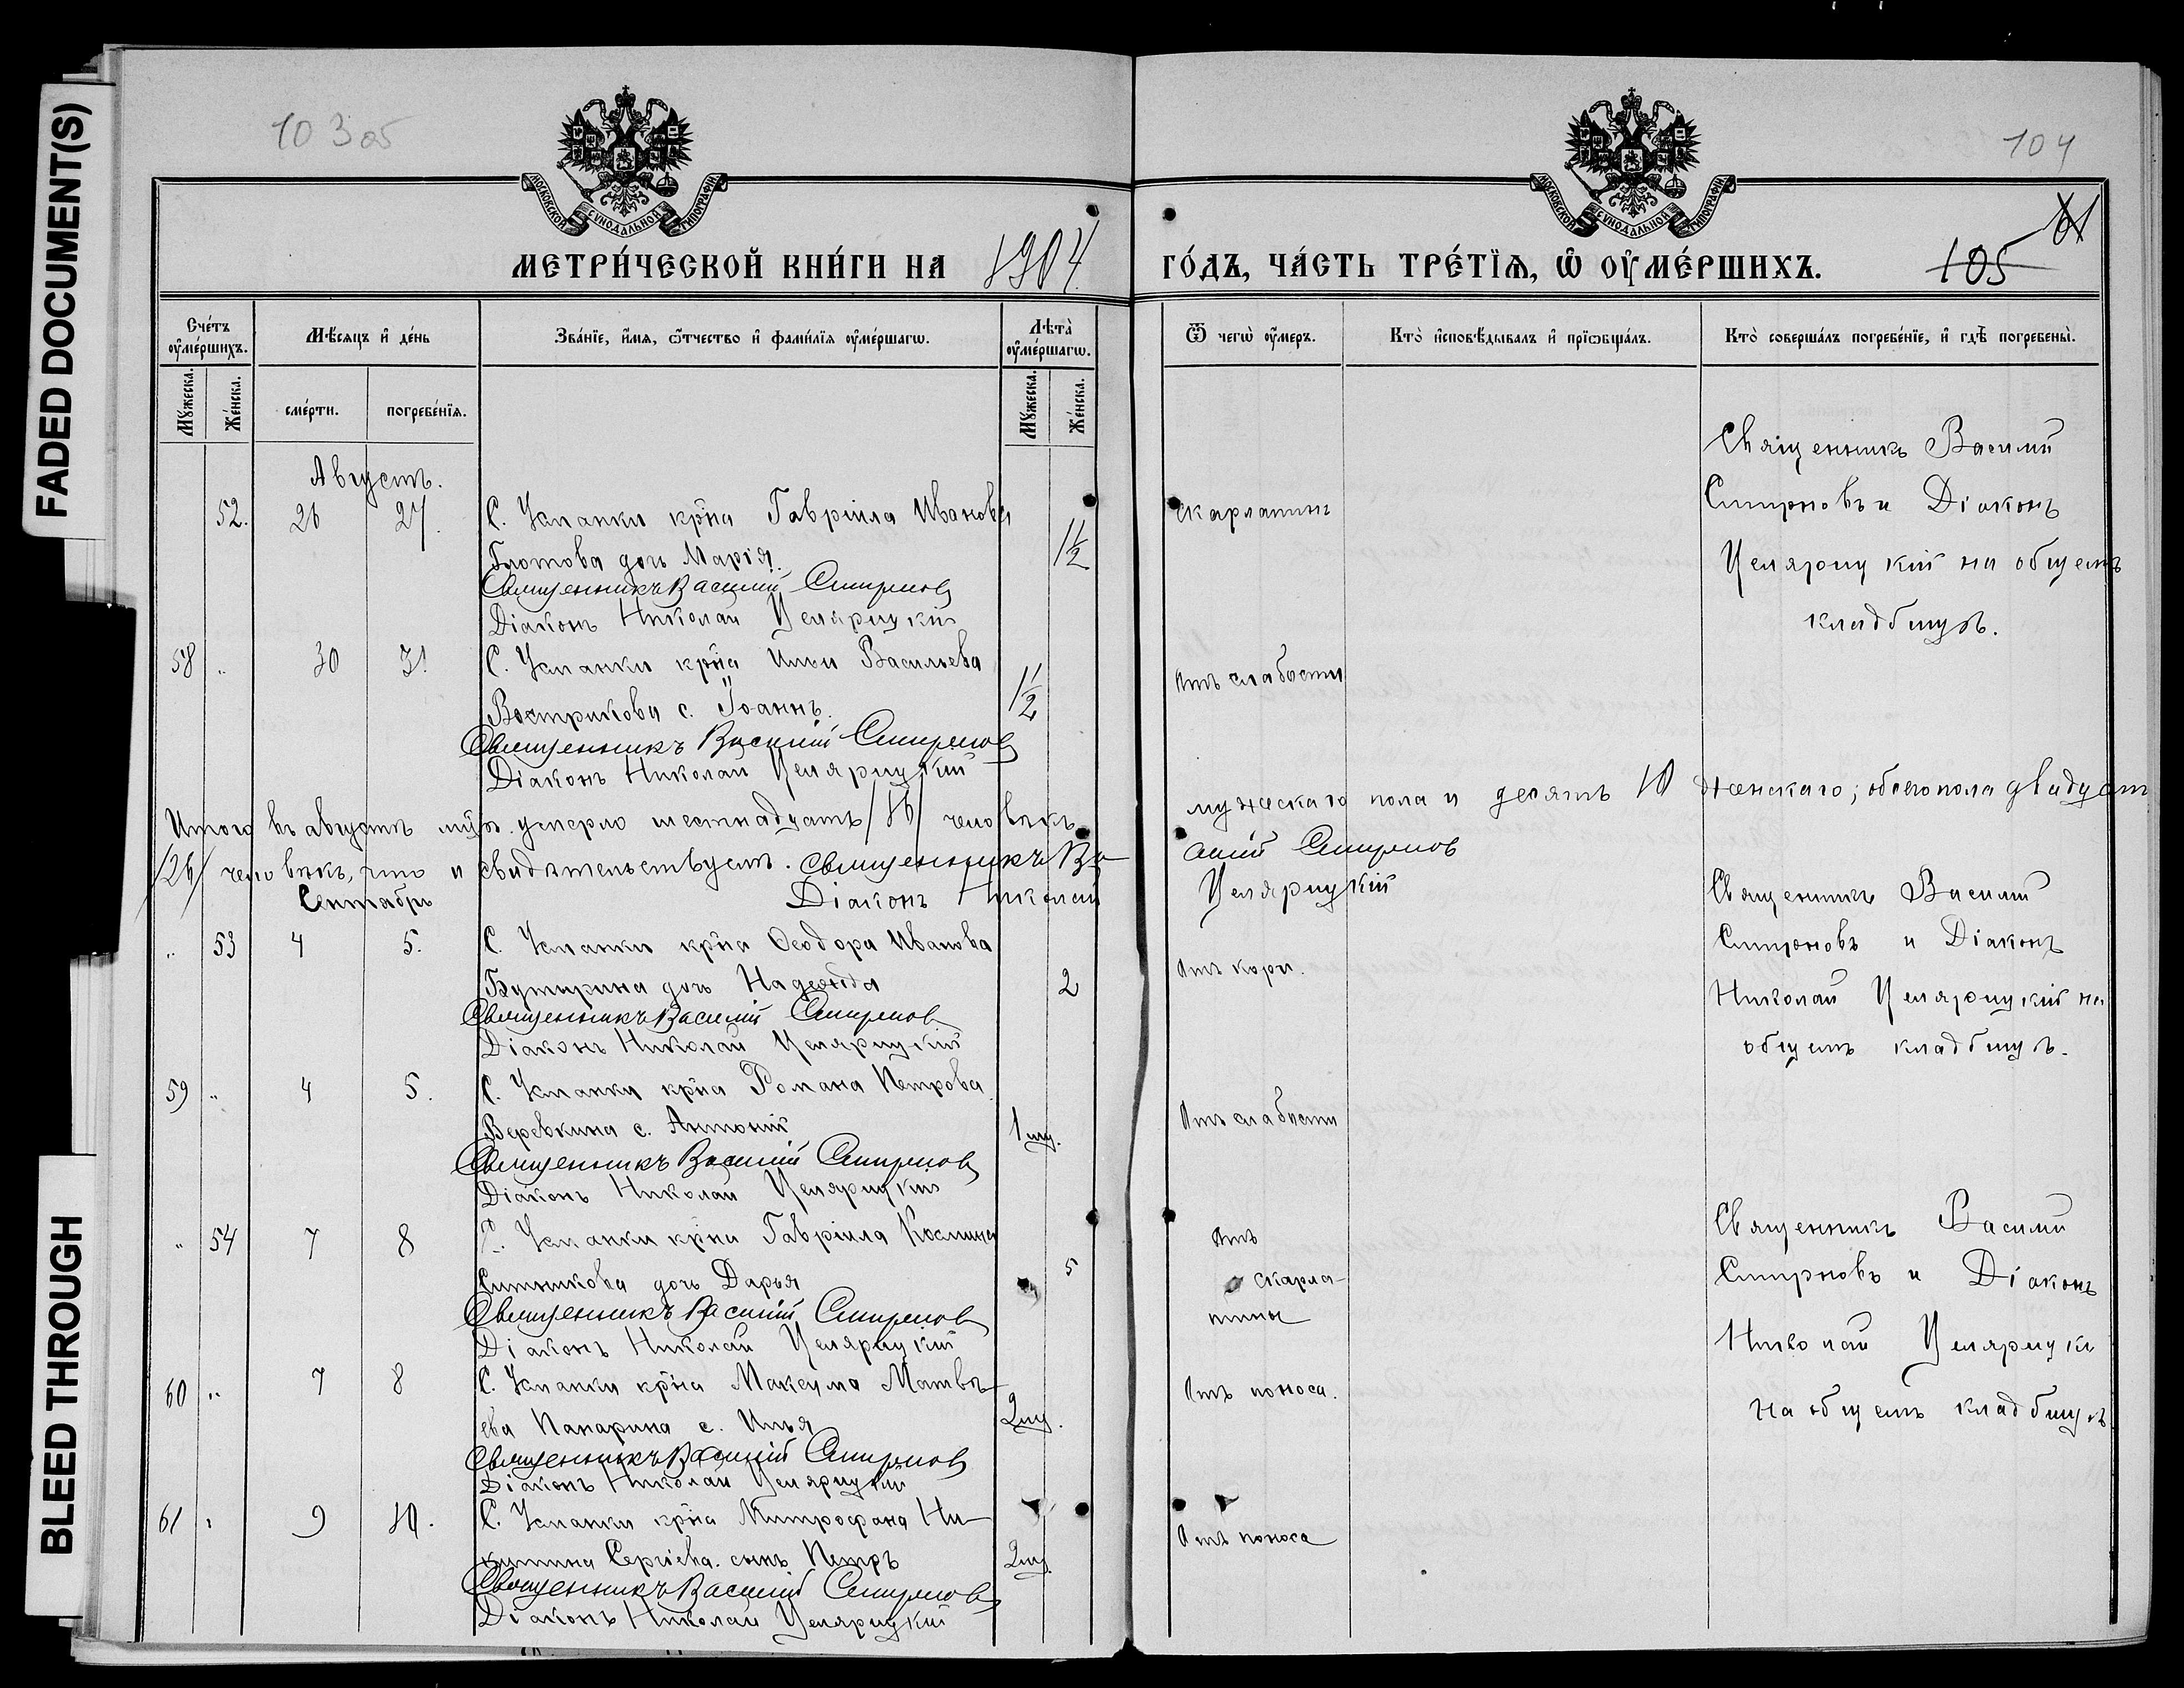 FADED DOCUMENT(S)
BLEED THROUGH
103 об
104
МОСКОВСКОЙ СУНОДАЛЬНОЙ ТИПОГРАФІИ
МОСКОВСКОЙ СУНОДАЛЬНОЙ ТИПОГРАФІИ
МЕТРИ́ЧЕСКОЙ КНИ́ГИ НА 1904
ГО́ДЪ, ЧА́СТЬ ТРЕ́ТІѦ, Ѡ ОУ҆МЕ́РШИХЪ. 105
Сче́тъ оу҆ме́ршихъ.
Мѣ́сяцъ и҆ де́нь
Зва́нїе, и҆́мя, ѻ҆́тчество и҆ фами́лїя оу҆ме́ршагѡ.
Лѣ́та оу҆ме́ршагѡ.
Ѿ чегѡ̀ оу҆́меръ.
Кто̀ и҆сповѣ́дывалъ и҆ прїѡбща́лъ.
Кто̀ соверша́лъ погребе́нїе, и҆ гдѣ̀ погребены̀.
Мꙋ́жеска. Же́нска. сме́рти. погребе́нїя. Мꙋ́жеска. Же́нска.
Августъ.
52. 26 27. С. Усманки кр̃на Гавріила Иванова
Глотова дочь Марія. 1½
Священникъ Василій Смирнов
Діаконъ Николай Целярицкій
скарлатины
Священникъ Василій
Смирновъ и Діаконъ
Целярицкій на общемъ
кладбищѣ.
58 „ 30 31 С. Усманки кр̃на Ильи Васильева
Вострикова с. Іоаннъ. 1½
Священникъ Василій Смирнов
Діаконъ Николай Целярицкій
Отъ слабости
Итого въ августѣ мцѣ умерло шестнадцать /16/ человѣкъ мужескаго пола и десять 10 женскаго; обоего пола двадцать
/26/ человѣкъ, что и свидѣтельствуемъ. Священникъ Василій Смирнов
Сентябрь Діаконъ Николай Целярицкій
„ 53 4 5. С. Усманки кр̃на Ѳеодора Иванова
Бутырина дочь Надежда 2
Священникъ Василій Смирнов
Діаконъ Николай Целярицкій
Отъ кори.
Священникъ Василій
Смирновъ и Діаконъ
Николай Целярицкій на
общемъ кладбищѣ.
59 „ 4 5. С. Усманки кр̃на Романа Петрова
Веревкина с. Антоній 1 мц.
Священникъ Василій Смирнов
Діаконъ Николай Целярицкій
Отъ слабости
„ 54 7 8 С. Усманки кр̃на Гавріила Космина
Ситникова дочь Дарья 5
Священникъ Василій Смирнов
Діаконъ Николай Целярицкій
Отъ
скарла-
тины
Священникъ Василій
Смирновъ и Діаконъ
Николай Целярицкі
на общемъ кладбищѣ
60 „ 7 8 С. Усманки кр̃на Максима Матвѣ-
ева Панарина с. Илья 2 мц.
Священникъ Василій Смирнов
Діаконъ Николай Целярицкій
Отъ поноса.
61 „ 9 10. С. Усманки кр̃на Митрофана Ни-
китина Сергіева сынъ Петръ 2 мц
Священникъ Василій Смирнов
Діаконъ Николай Целярицкій
Отъ поноса